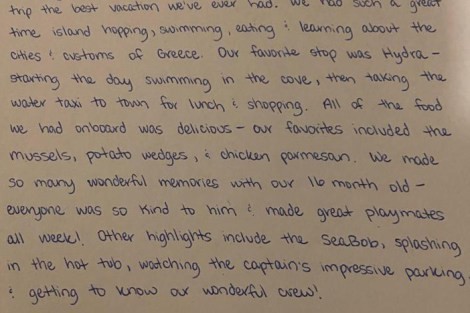 trip the best vacation we've ever had. We had such a great
time island hopping, swimming, eating & learning about the
cities & customs of Greece. Our favorite stop was Hydra -
starting the day swimming in the cove, then taking the
water taxi to town for lunch & shopping. All of the food
we had onboard was delicious - our favorites included the
mussels, potato wedges, & chicken parmesan. We made
so many wonderful memories with our 16 month old -
everyone was so kind to him & made great playmates
all week! Other highlights include the SeaBob, splashing
in the hot tub, watching the captain's impressive parking,
& getting to know our wonderful crew!